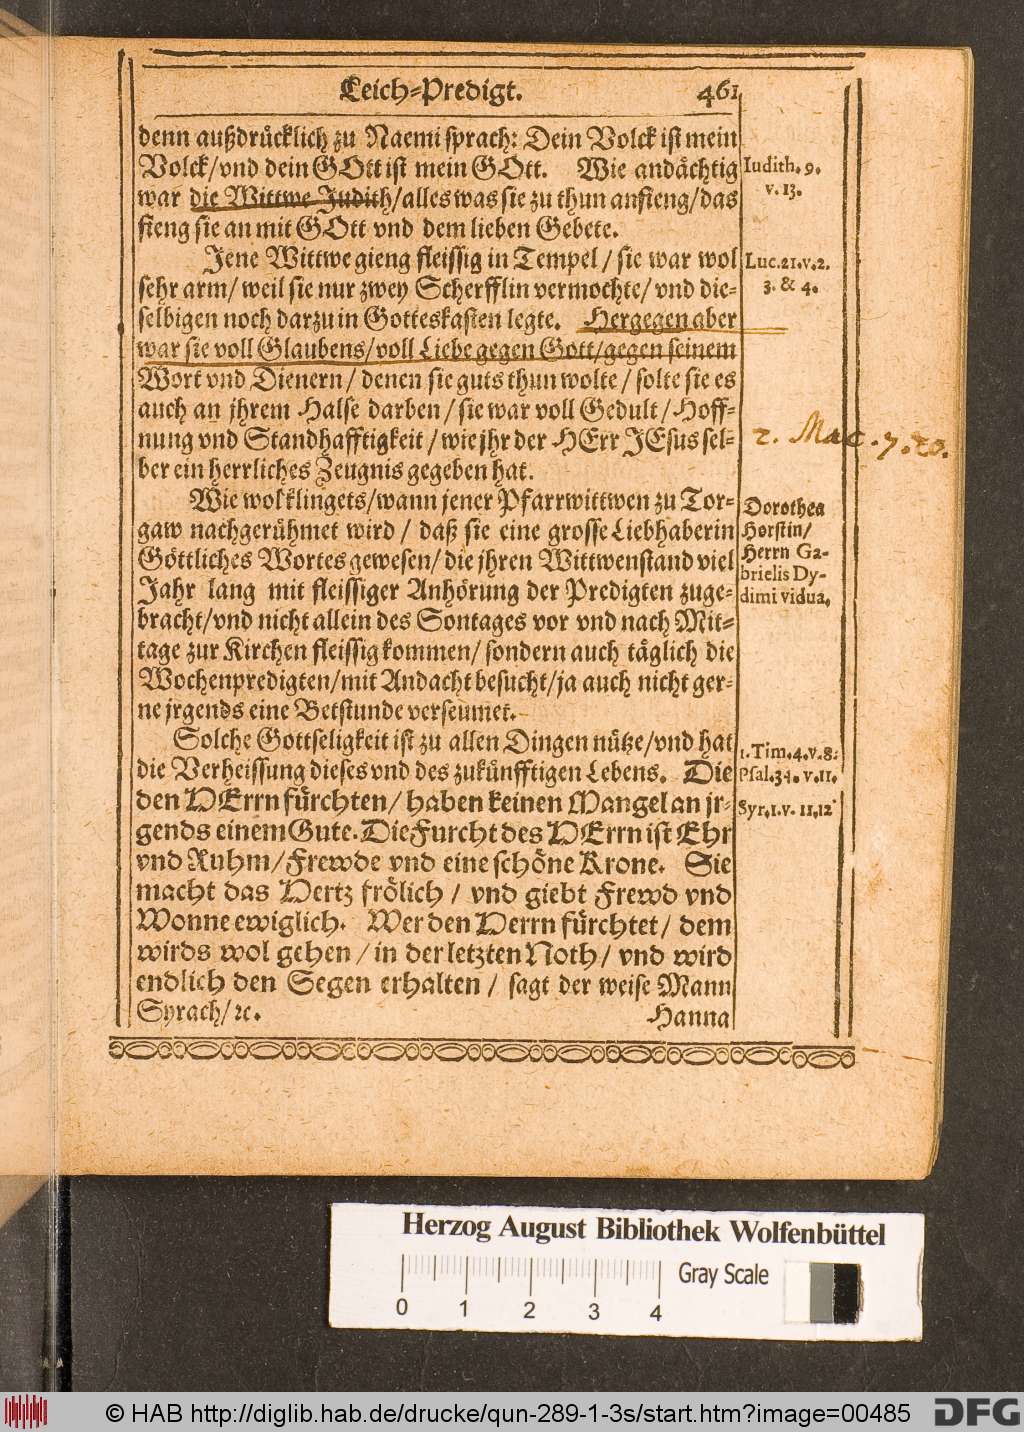 Leich-Predigt. 461
denn außdrücklich zu Naemi sprach: Dein Volck ist mein
Volck/vnd dein GOtt ist mein GOtt. Wie andächtig
war die Wittwe Judith/alles was sie zu thun anfieng/das
fieng sie an mit GOtt vnd dem lieben Gebete.
Iudith. 9.
v. 13.
Jene Wittwe gieng fleissig in Tempel/ sie war wol
sehr arm/ weil sie nur zwey Scherfflin vermochte/ vnd die-
selbigen noch darzu in Gotteskasten legte. Hergegen aber
war sie voll Glaubens/voll Liebe gegen Gott/gegen seinem
Wort vnd Dienern/ denen sie guts thun wolte/ solte sie es
auch an jhrem Halse darben/ sie war voll Gedult/ Hoff-
nung vnd Standhafftigkeit/ wie jhr der HErr JEsus sel-
ber ein herrliches Zeugnis gegeben hat.
Luc. 21. v. 2.
3. & 4.
2. Mac. 7. 20.
Wie wol klingets/wann jener Pfarrwittwen zu Tor-
gaw nachgerühmet wird/ daß sie eine grosse Liebhaberin
Göttliches Wortes gewesen/ die jhren Wittwenstand viel
Jahr lang mit fleissiger Anhörung der Predigten zuge-
bracht/vnd nicht allein des Sontages vor vnd nach Mit-
tage zur Kirchen fleissig kommen/ sondern auch täglich die
Wochenpredigten/mit Andacht besucht/ja auch nicht ger-
ne jrgends eine Betstunde verseumet.
Dorothea
Horstin/
Herrn Ga-
brielis Dy-
dimi vidua.
Solche Gottseligkeit ist zu allen Dingen nütze/vnd hat
die Verheissung dieses vnd des zukünfftigen Lebens. Die
den HErrn fürchten/ haben keinen Mangel an jr-
gends einem Gute. Die Furcht des HErrn ist Ehr
vnd Ruhm/Frewde vnd eine schöne Krone. Sie
macht das Hertz frölich/ vnd giebt Frewd vnd
Wonne ewiglich. Wer den Herrn fürchtet/ dem
wirds wol gehen/ in der letzten Noth/ vnd wird
endlich den Segen erhalten/ sagt der weise Mann
Syrach/ꝛc.
1. Tim. 4. v. 8.
Psal. 34. v. 11.
Syr. 1. v. 11, 12
Hanna
Herzog August Bibliothek Wolfenbüttel
Gray Scale
0 1 2 3 4
© HAB http://diglib.hab.de/drucke/qun-289-1-3s/start.htm?image=00485
DFG